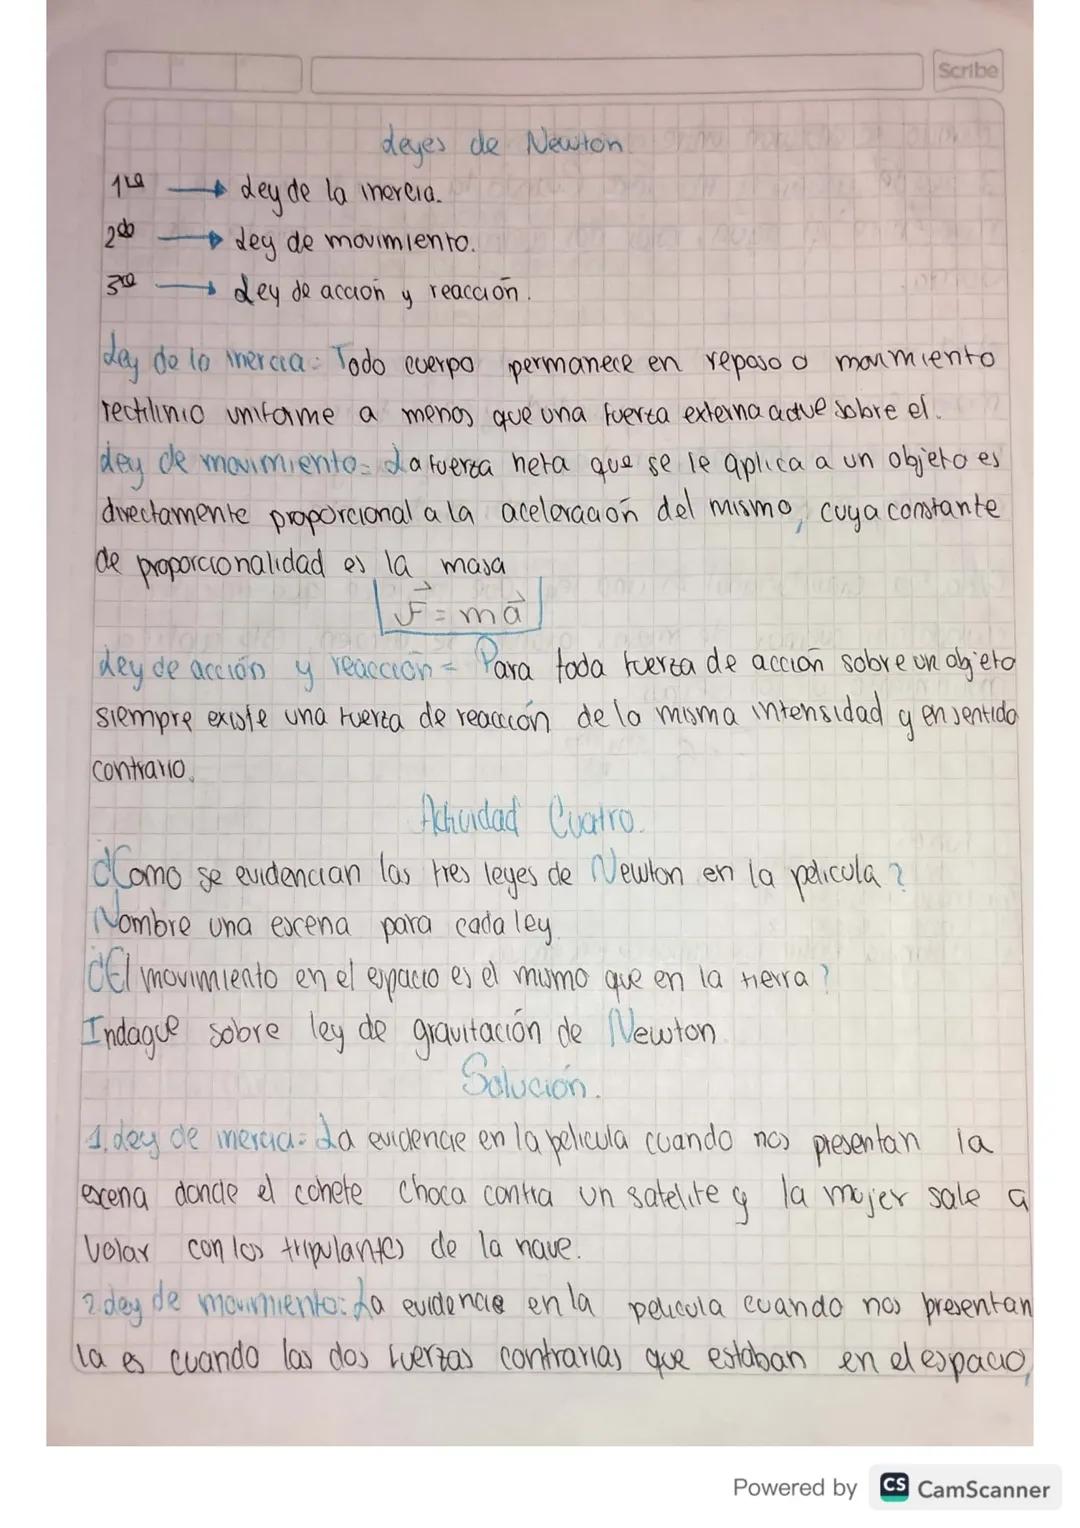 Scribe
Leyes de Newton.
1ra → Ley de la inercia.
2do → Ley de movimiento.
3ra → Ley de acción y reacción.
Ley de la inercia: Todo cuerpo permanece en reposo o movimiento
rectilinio uniforme a menos que una fuerza externa actue sobre el.
Ley de movimiento: La fuerza neta que se le aplica a un objeto es
directamente proporcional a la aceleración del mismo, cuya constante
de proporcionalidad es la masa
F⃗ = ma⃗
Ley de acción y reacción = Para toda fuerza de acción sobre un objeto
siempre existe una fuerza de reacción de la misma intensidad y en sentido
contrario.
Actividad Cuatro.
¿Como se evidencian las tres leyes de Newton en la pelicula?
Nombre una escena para cada ley.
¿El movimiento en el espacio es el mismo que en la tierra?
Indague sobre ley de gravitación de Newton
Solución.
1. Ley de inercia: La evidencie en la pelicula cuando nos presentan la
escena donde el cohete choca contra un satelite y la mujer sale a
volar con los tripulantes de la nave.
2. Ley de movimiento: La evidencie en la pelicula cuando nos presentan
la es cuando las dos fuerzas contrarias que estaban en el espacio,
Powered by CS CamScanner